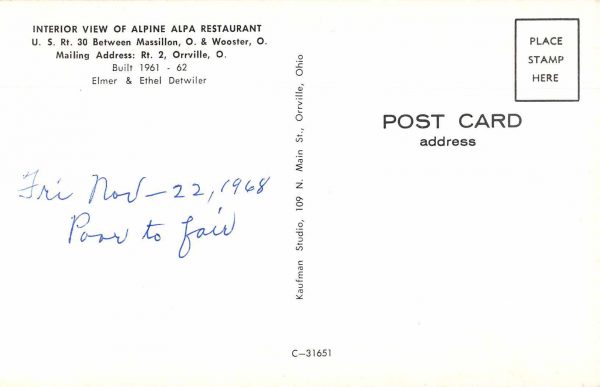 INTERIOR VIEW OF ALPINE ALPA RESTAURANT
U. S. Rt. 30 Between Massillon, O. & Wooster, O.
Mailing Address: Rt. 2, Orrville, O.
Built 1961 - 62
Elmer & Ethel Detwiler
Fri Nov - 22, 1968
Poor to fair
Kaufman Studio, 109 N. Main St., Orrville, Ohio
PLACE
STAMP
HERE
POST CARD
address
C-31651